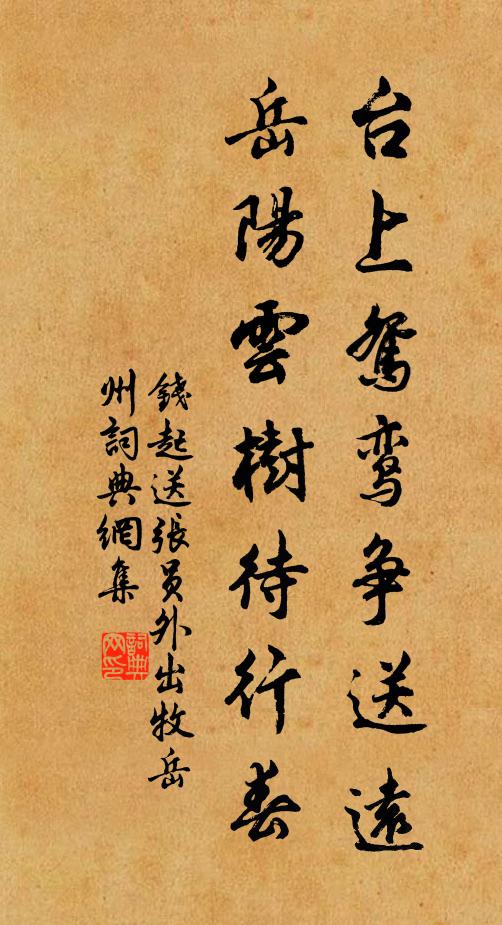 台上鸳鸾争送遠
岳陽雲樹待行春
錢起送張員外出牧岳
州詞典網集
詞典网印